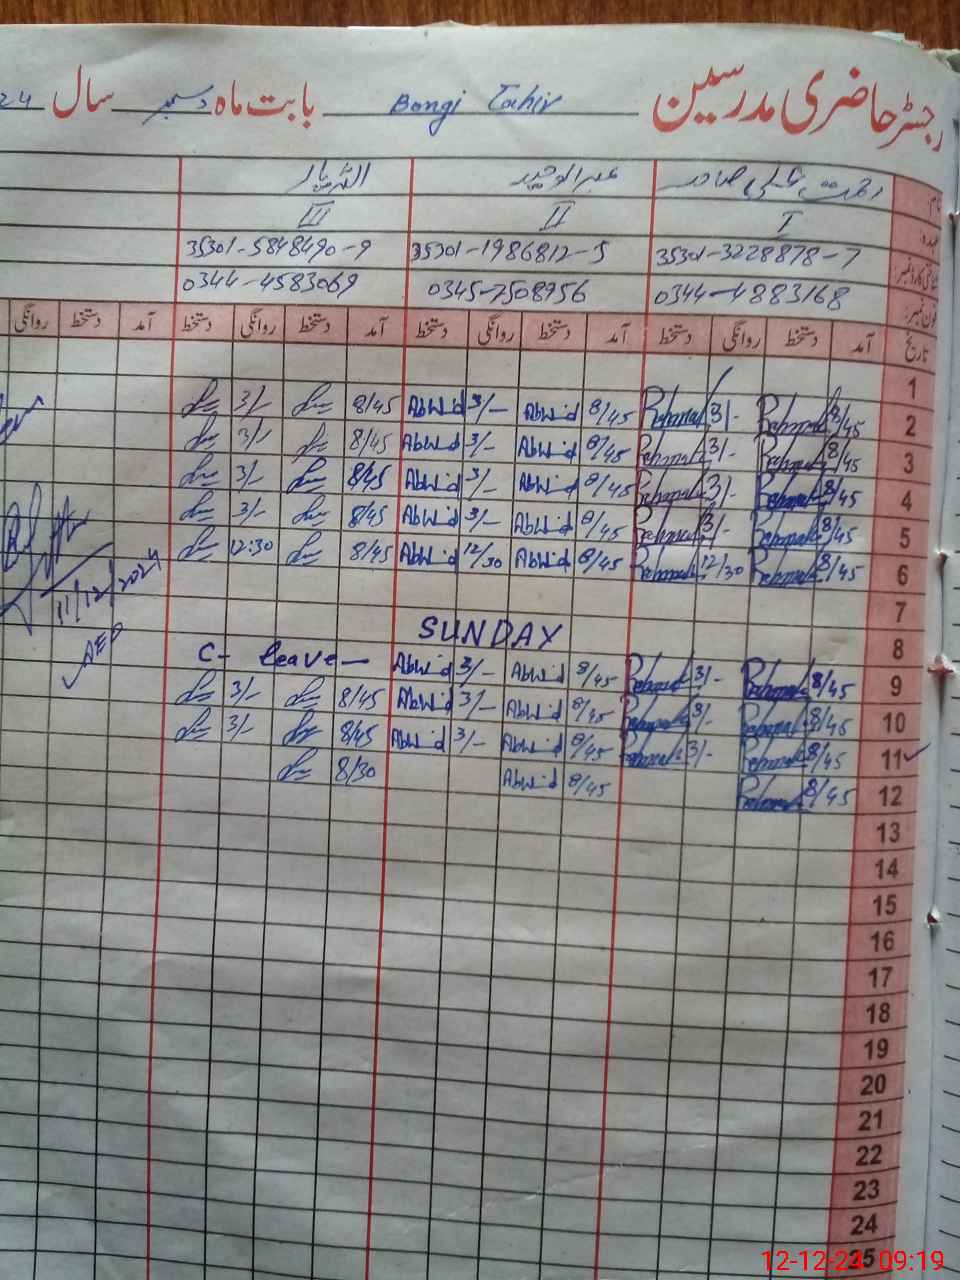 رجسٹر حاضری مدرسین Bongi Tahir بابت ماہ دسمبر سال 24
نام: رحمت علی عبدالوحید اللہ یار
عہدہ: I II III
شناختی کارڈ نمبر: 35301-3228878-7 35301-1986812-5 35301-5848490-9
فون نمبر: 0344-4883168 0345-7508956 0344-4583069
تاریخ آمد دستخط روانگی دستخط آمد دستخط روانگی دستخط آمد دستخط روانگی دستخط آمد دستخط روانگی
1
2 8/45 Rehmat 3/- Rehmat 8/45 Abwid 3/- Abwid 8/45 3/-
3 8/45 Rehmat 3/- Rehmat 8/45 Abwid 3/- Abwid 8/45 3/-
4 8/45 Rehmat 3/- Rehmat 8/45 Abwid 3/- Abwid 8/45 3/-
5 8/45 Rehmat 3/- Rehmat 8/45 Abwid 3/- Abwid 8/45 3/-
6 8/45 Rehmat 12/30 Rehmat 8/45 Abwid 12/30 Abwid 8/45 12:30
7
8 SUNDAY
9 8/45 Rehmat 3/- Rehmat 8/45 Abwid 3/- Abwid C- leave-
10 8/45 Rehmat 3/- Rehmat 8/45 Abwid 3/- Abwid 8/45 3/-
11 8/45 Rehmat 3/- Rehmat 8/45 Abwid 3/- Abwid 8/45 3/-
12 8/45 Rehmat 8/45 Abwid 8/30
11/12/2024
AEO
13
14
15
16
17
18
19
20
21
22
23
24
25
12-12-24 09:19